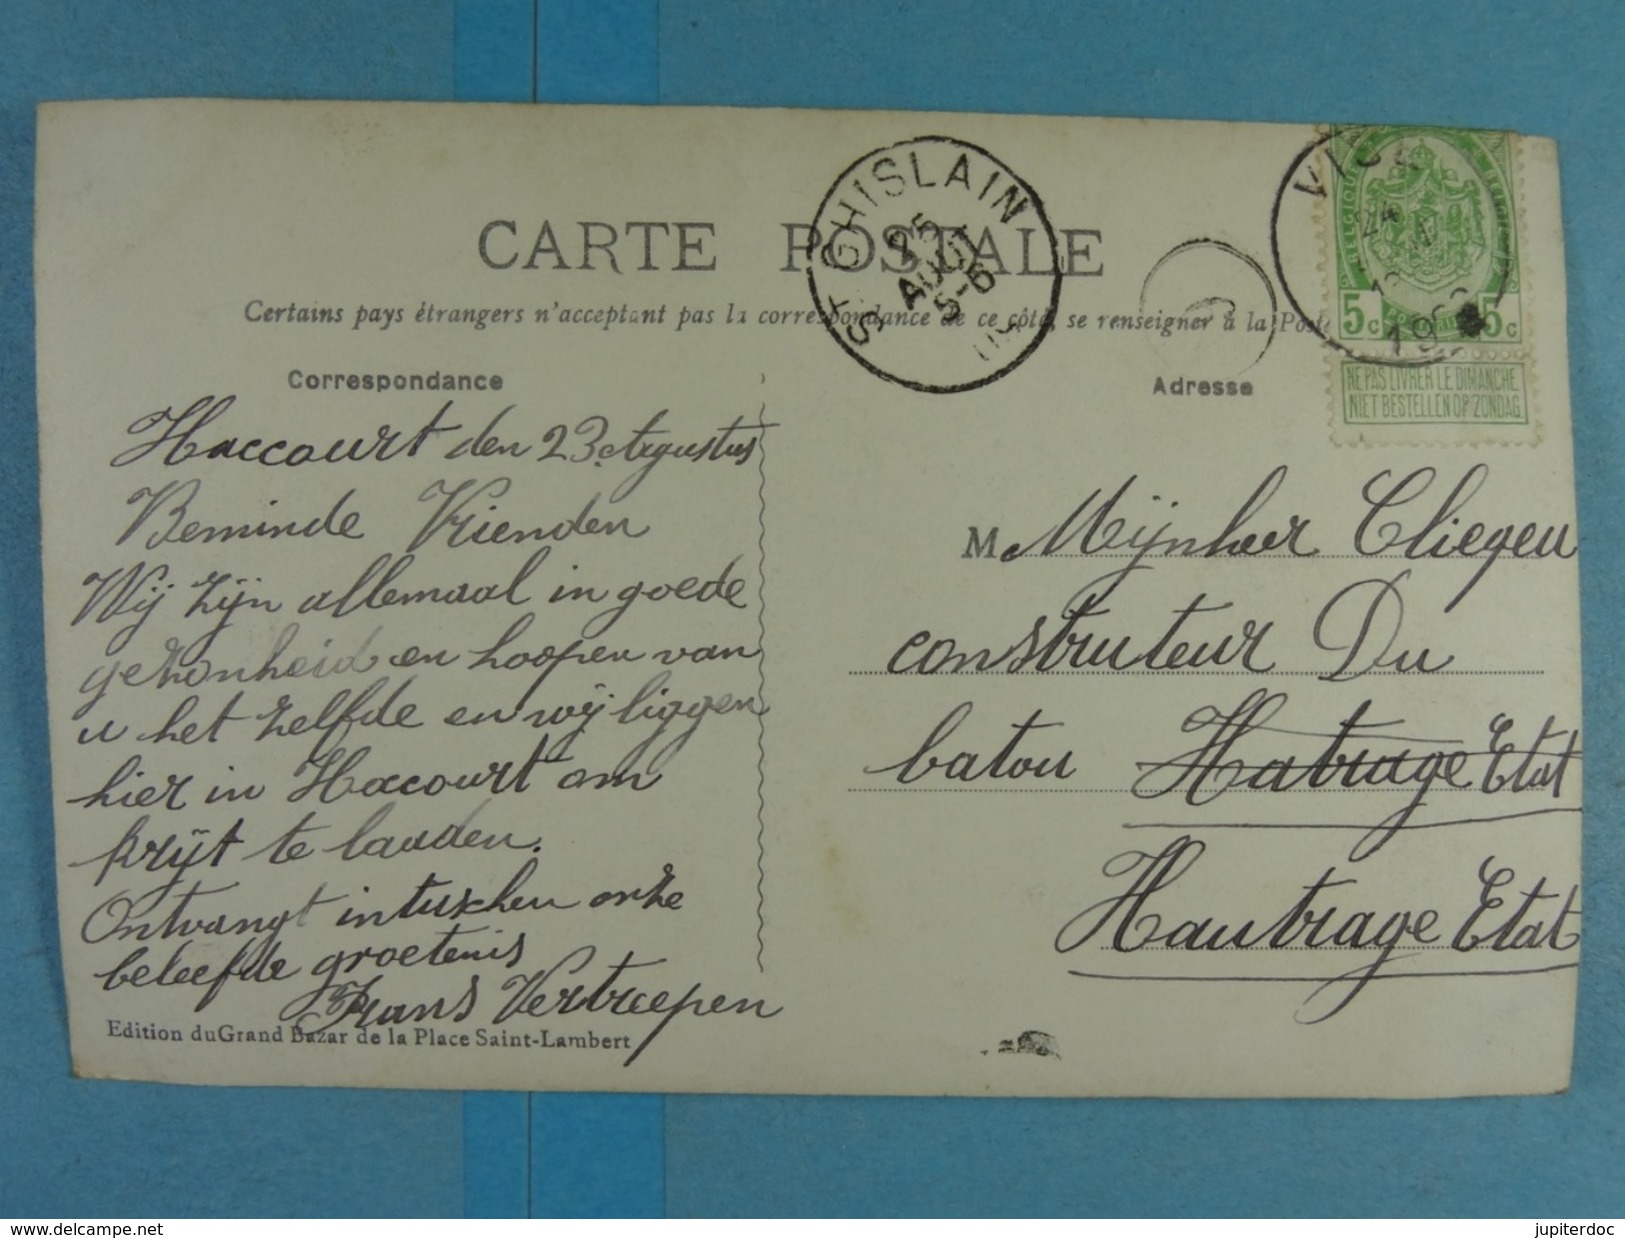 CARTE POSTALE
Certains pays étrangers n'acceptent pas la correspondance de ce côté, se renseigner à la Poste
ST GHISLAIN
25
AOUT
5-6
BELGIQUE
5c 5c
NE PAS LIVRER LE DIMANCHE.
NIET BESTELLEN OP ZONDAG.
Correspondance
Haccourt den 23 Augustus
Beminde Vrienden
Wij zijn allemaal in goede
gezonheid en hoopen van
u het zelfde en wij liggen
hier in Haccourt om
krijt te lauden.
Ontvangt intuschen onze
beleefde groetenis
Frans Vertreepen
Edition du Grand Bazar de la Place Saint-Lambert
Adresse
M Mijnheer Cliegeu
construteur Du
batou Hatrage Etat
Hautrage Etat
www.delcampe.net
jupiterdoc